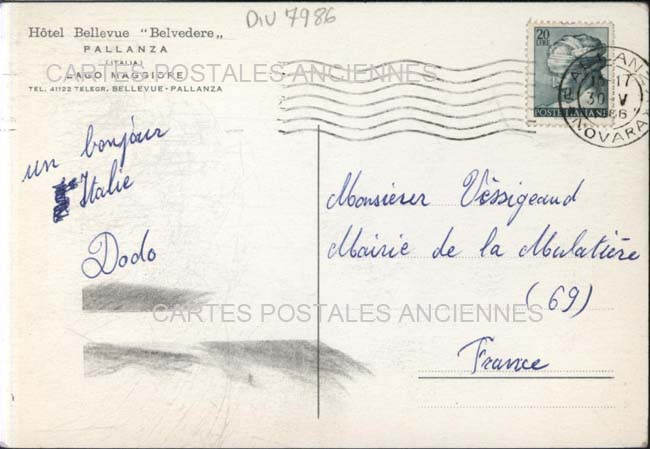 DIV 7986
Hôtel Bellevue "Belvedere„
PALLANZA
(ITALIA)
LAGO MAGGIORE
TEL. 41122 TELEGR. BELLEVUE-PALLANZA
CARTES POSTALES ANCIENNES
20
LIRE
POSTE ITALIANE
17
30 V
NOVARA
un bonjour
Italie
Dodo
Monsieur Vèssigeaud
Mairie de la Mulatière
(69)
France
CARTES POSTALES ANCIENNES